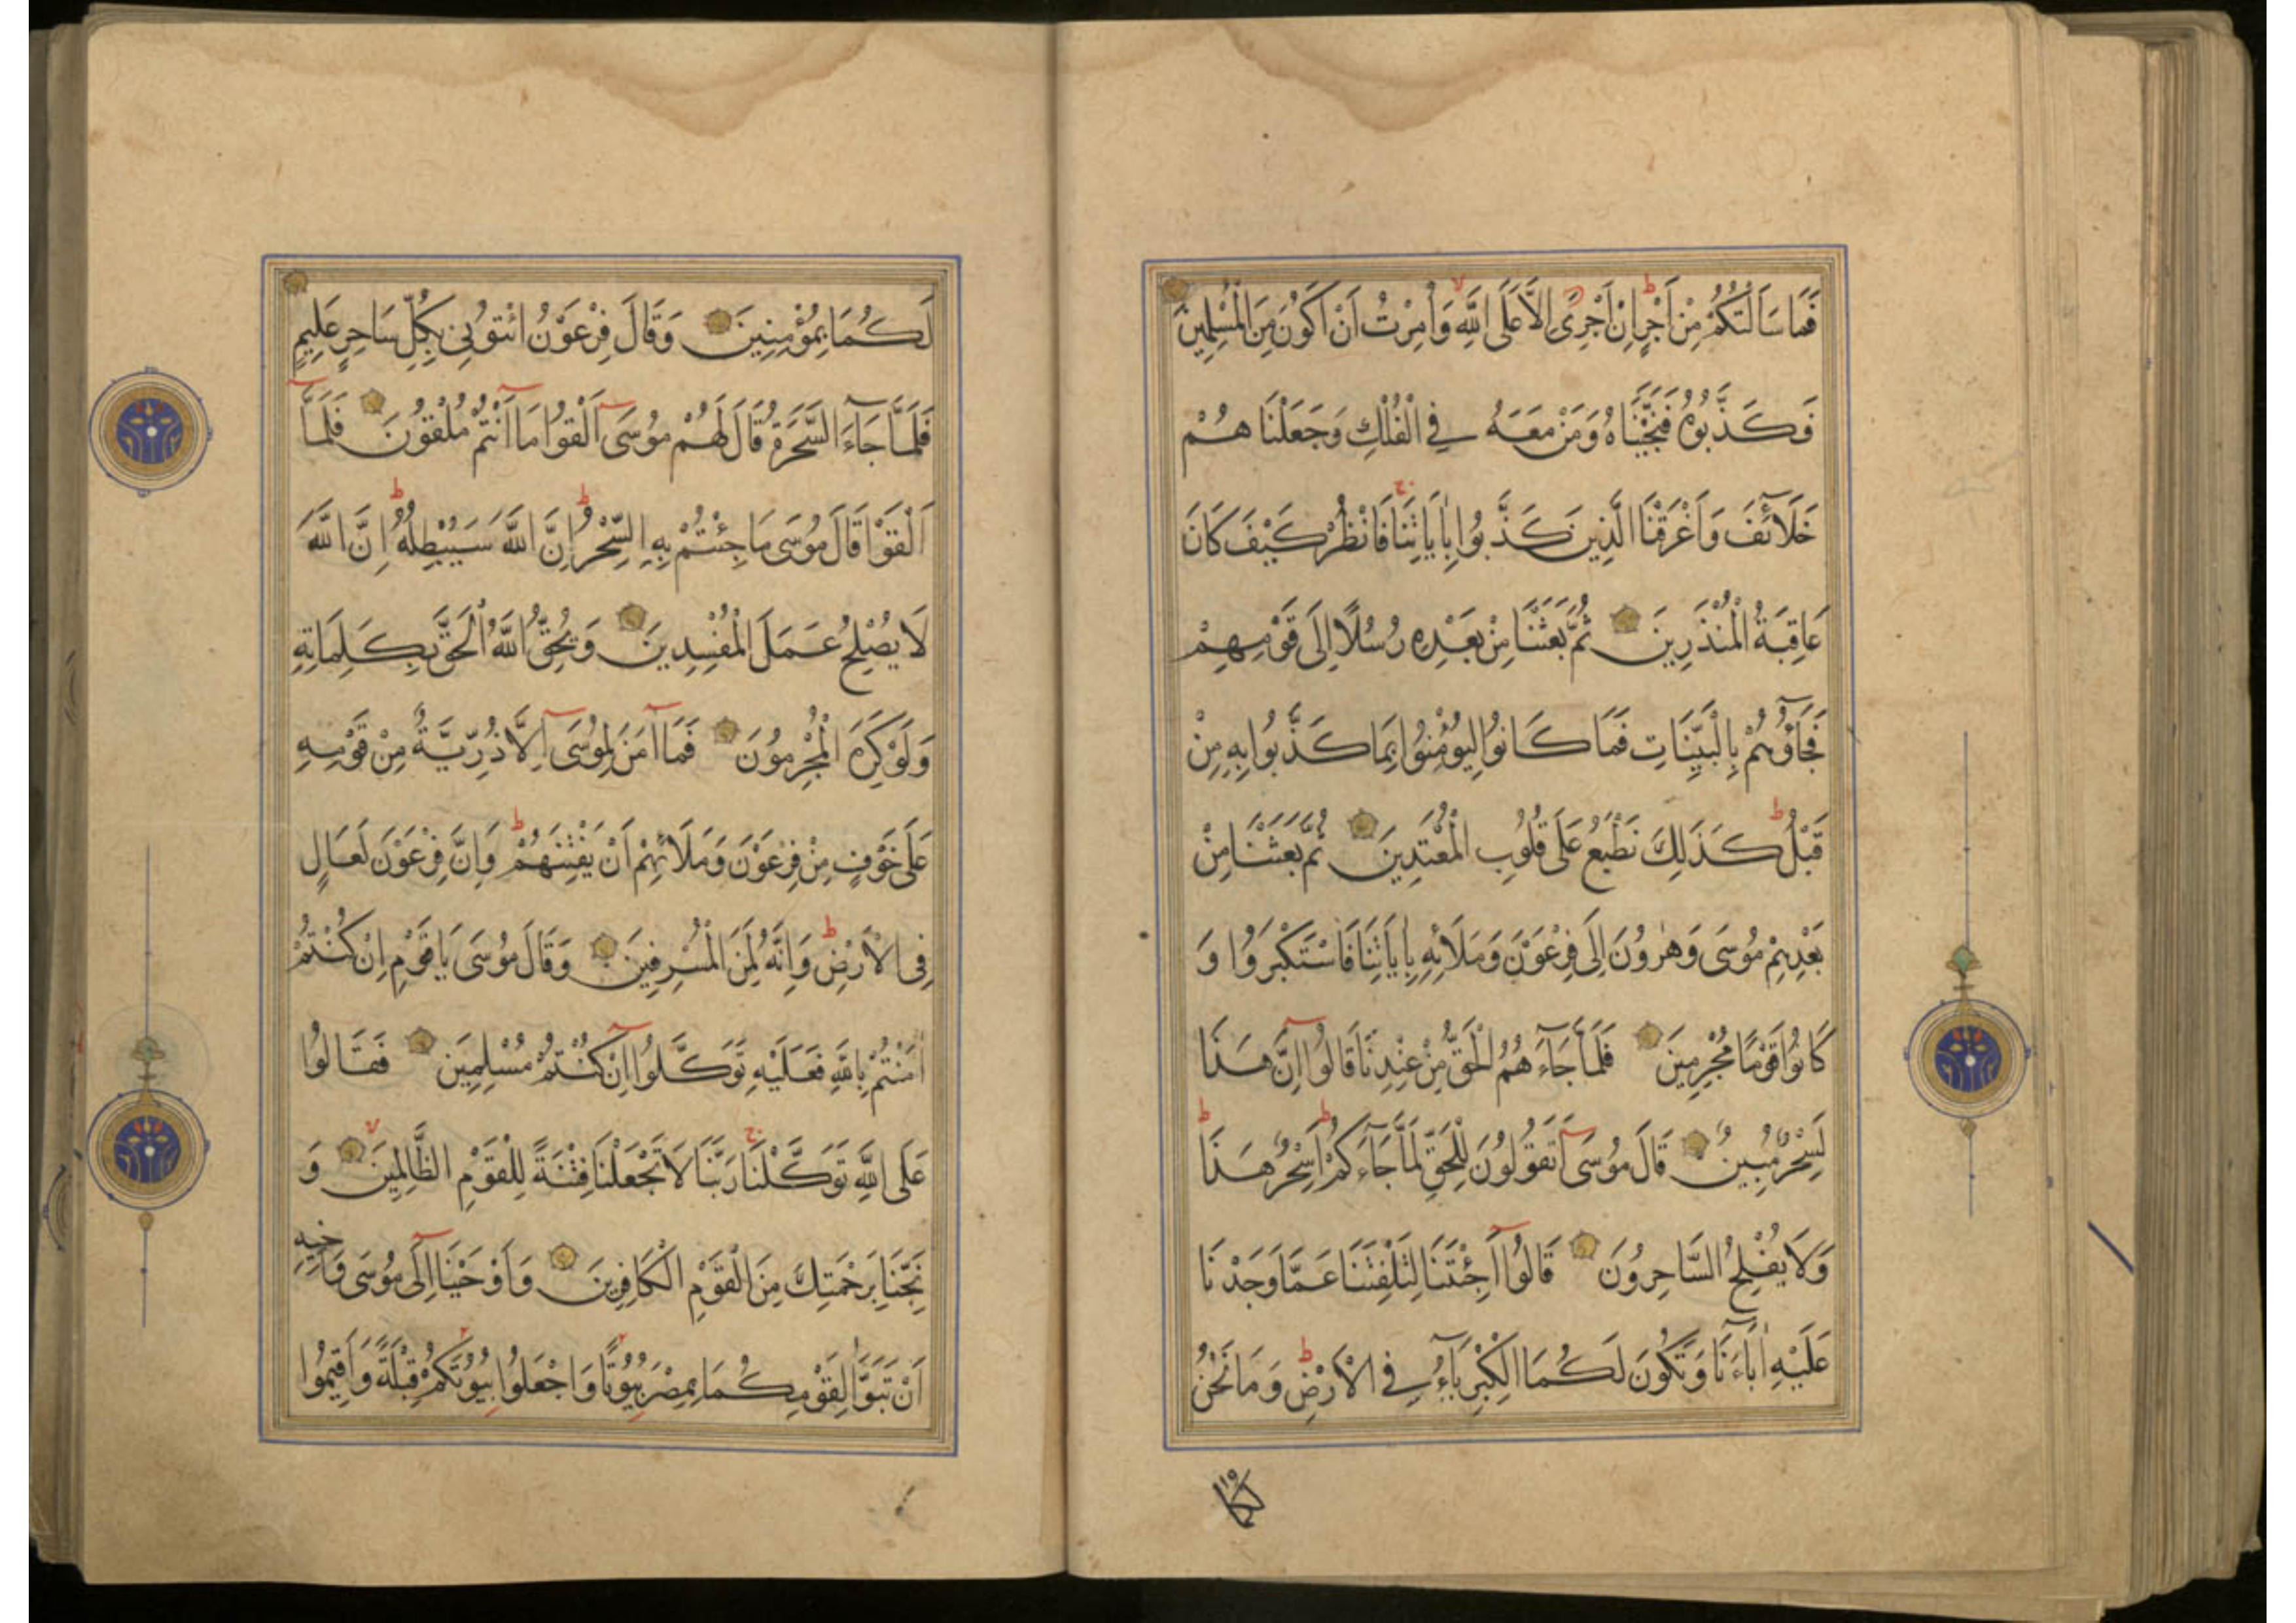 فَمَا سَاَلْتُكُمْ مِنْ اَجْرٍ اِنْ اَجْرِيَ اِلَّا عَلَى اللّٰهِ وَاُمِرْتُ اَنْ اَكُونَ مِنَ الْمُسْلِمِينَ
فَكَذَّبُوهُ فَنَجَّيْنَاهُ وَمَنْ مَعَهُ فِي الْفُلْكِ وَجَعَلْنَا هُمْ
خَلَائِفَ وَاَغْرَقْنَا الَّذِينَ كَذَّبُوا بِاٰيَاتِنَا فَانْظُرْ كَيْفَ كَانَ
عَاقِبَةُ الْمُنْذَرِينَ ثُمَّ بَعَثْنَا مِنْ بَعْدِهِ رُسُلًا اِلَى قَوْمِهِمْ
فَجَاؤُهُمْ بِالْبَيِّنَاتِ فَمَا كَانُوا لِيُؤْمِنُوا بِمَا كَذَّبُوا بِهِ مِنْ
قَبْلُ كَذَلِكَ نَطْبَعُ عَلَى قُلُوبِ الْمُعْتَدِينَ ثُمَّ بَعَثْنَا مِنْ
بَعْدِهِمْ مُوسَى وَهٰرُونَ اِلَى فِرْعَوْنَ وَمَلَائِهِ بِاٰيَاتِنَا فَاسْتَكْبَرُوا وَ
كَانُوا قَوْمًا مُجْرِمِينَ فَلَمَّا جَاءَ هُمُ الْحَقُّ مِنْ عِنْدِنَا قَالُوا اِنَّ هَذَا
لَسِحْرٌ مُبِينٌ قَالَ مُوسَى اَتَقُولُونَ لِلْحَقِّ لَمَّا جَاءَكُمْ اَسِحْرٌ هَذَا
وَلَا يُفْلِحُ السَّاحِرُونَ قَالُوا اَجِئْتَنَا لِتَلْفِتَنَا عَمَّا وَجَدْنَا
عَلَيْهِ اٰبَاءَنَا وَتَكُونَ لَكُمَا الْكِبْرِيَاءُ فِي الْاَرْضِ وَمَا نَحْنُ
لَكُمَا بِمُؤْمِنِينَ وَقَالَ فِرْعَوْنُ ائْتُونِي بِكُلِّ سَاحِرٍ عَلِيمٍ
فَلَمَّا جَاءَ السَّحَرَةُ قَالَ لَهُمْ مُوسَى اَلْقُوا مَا اَنْتُمْ مُلْقُونَ فَلَمَّا
اَلْقَوْا قَالَ مُوسَى مَا جِئْتُمْ بِهِ السِّحْرُ اِنَّ اللّٰهَ سَيُبْطِلُهُ اِنَّ اللّٰهَ
لَا يُصْلِحُ عَمَلَ الْمُفْسِدِينَ وَيُحِقُّ اللّٰهُ الْحَقَّ بِكَلِمَاتِهِ
وَلَوْ كَرِهَ الْمُجْرِمُونَ فَمَا اٰمَنَ لِمُوسَى اِلَّا ذُرِّيَّةٌ مِنْ قَوْمِهِ
عَلَى خَوْفٍ مِنْ فِرْعَوْنَ وَمَلَائِهِمْ اَنْ يَفْتِنَهُمْ وَاِنَّ فِرْعَوْنَ لَعَالٍ
فِي الْاَرْضِ وَاِنَّهُ لَمِنَ الْمُسْرِفِينَ وَقَالَ مُوسَى يَا قَوْمِ اِنْ كُنْتُمْ
اٰمَنْتُمْ بِاللّٰهِ فَعَلَيْهِ تَوَكَّلُوا اِنْ كُنْتُمْ مُسْلِمِينَ فَقَالُوا
عَلَى اللّٰهِ تَوَكَّلْنَا رَبَّنَا لَا تَجْعَلْنَا فِتْنَةً لِلْقَوْمِ الظَّالِمِينَ وَ
نَجِّنَا بِرَحْمَتِكَ مِنَ الْقَوْمِ الْكَافِرِينَ وَاَوْحَيْنَا اِلَى مُوسَى وَاَخِيهِ
اَنْ تَبَوَّاٰ لِقَوْمِكُمَا بِمِصْرَ بُيُوتًا وَاجْعَلُوا بُيُوتَكُمْ قِبْلَةً وَاَقِيمُوا